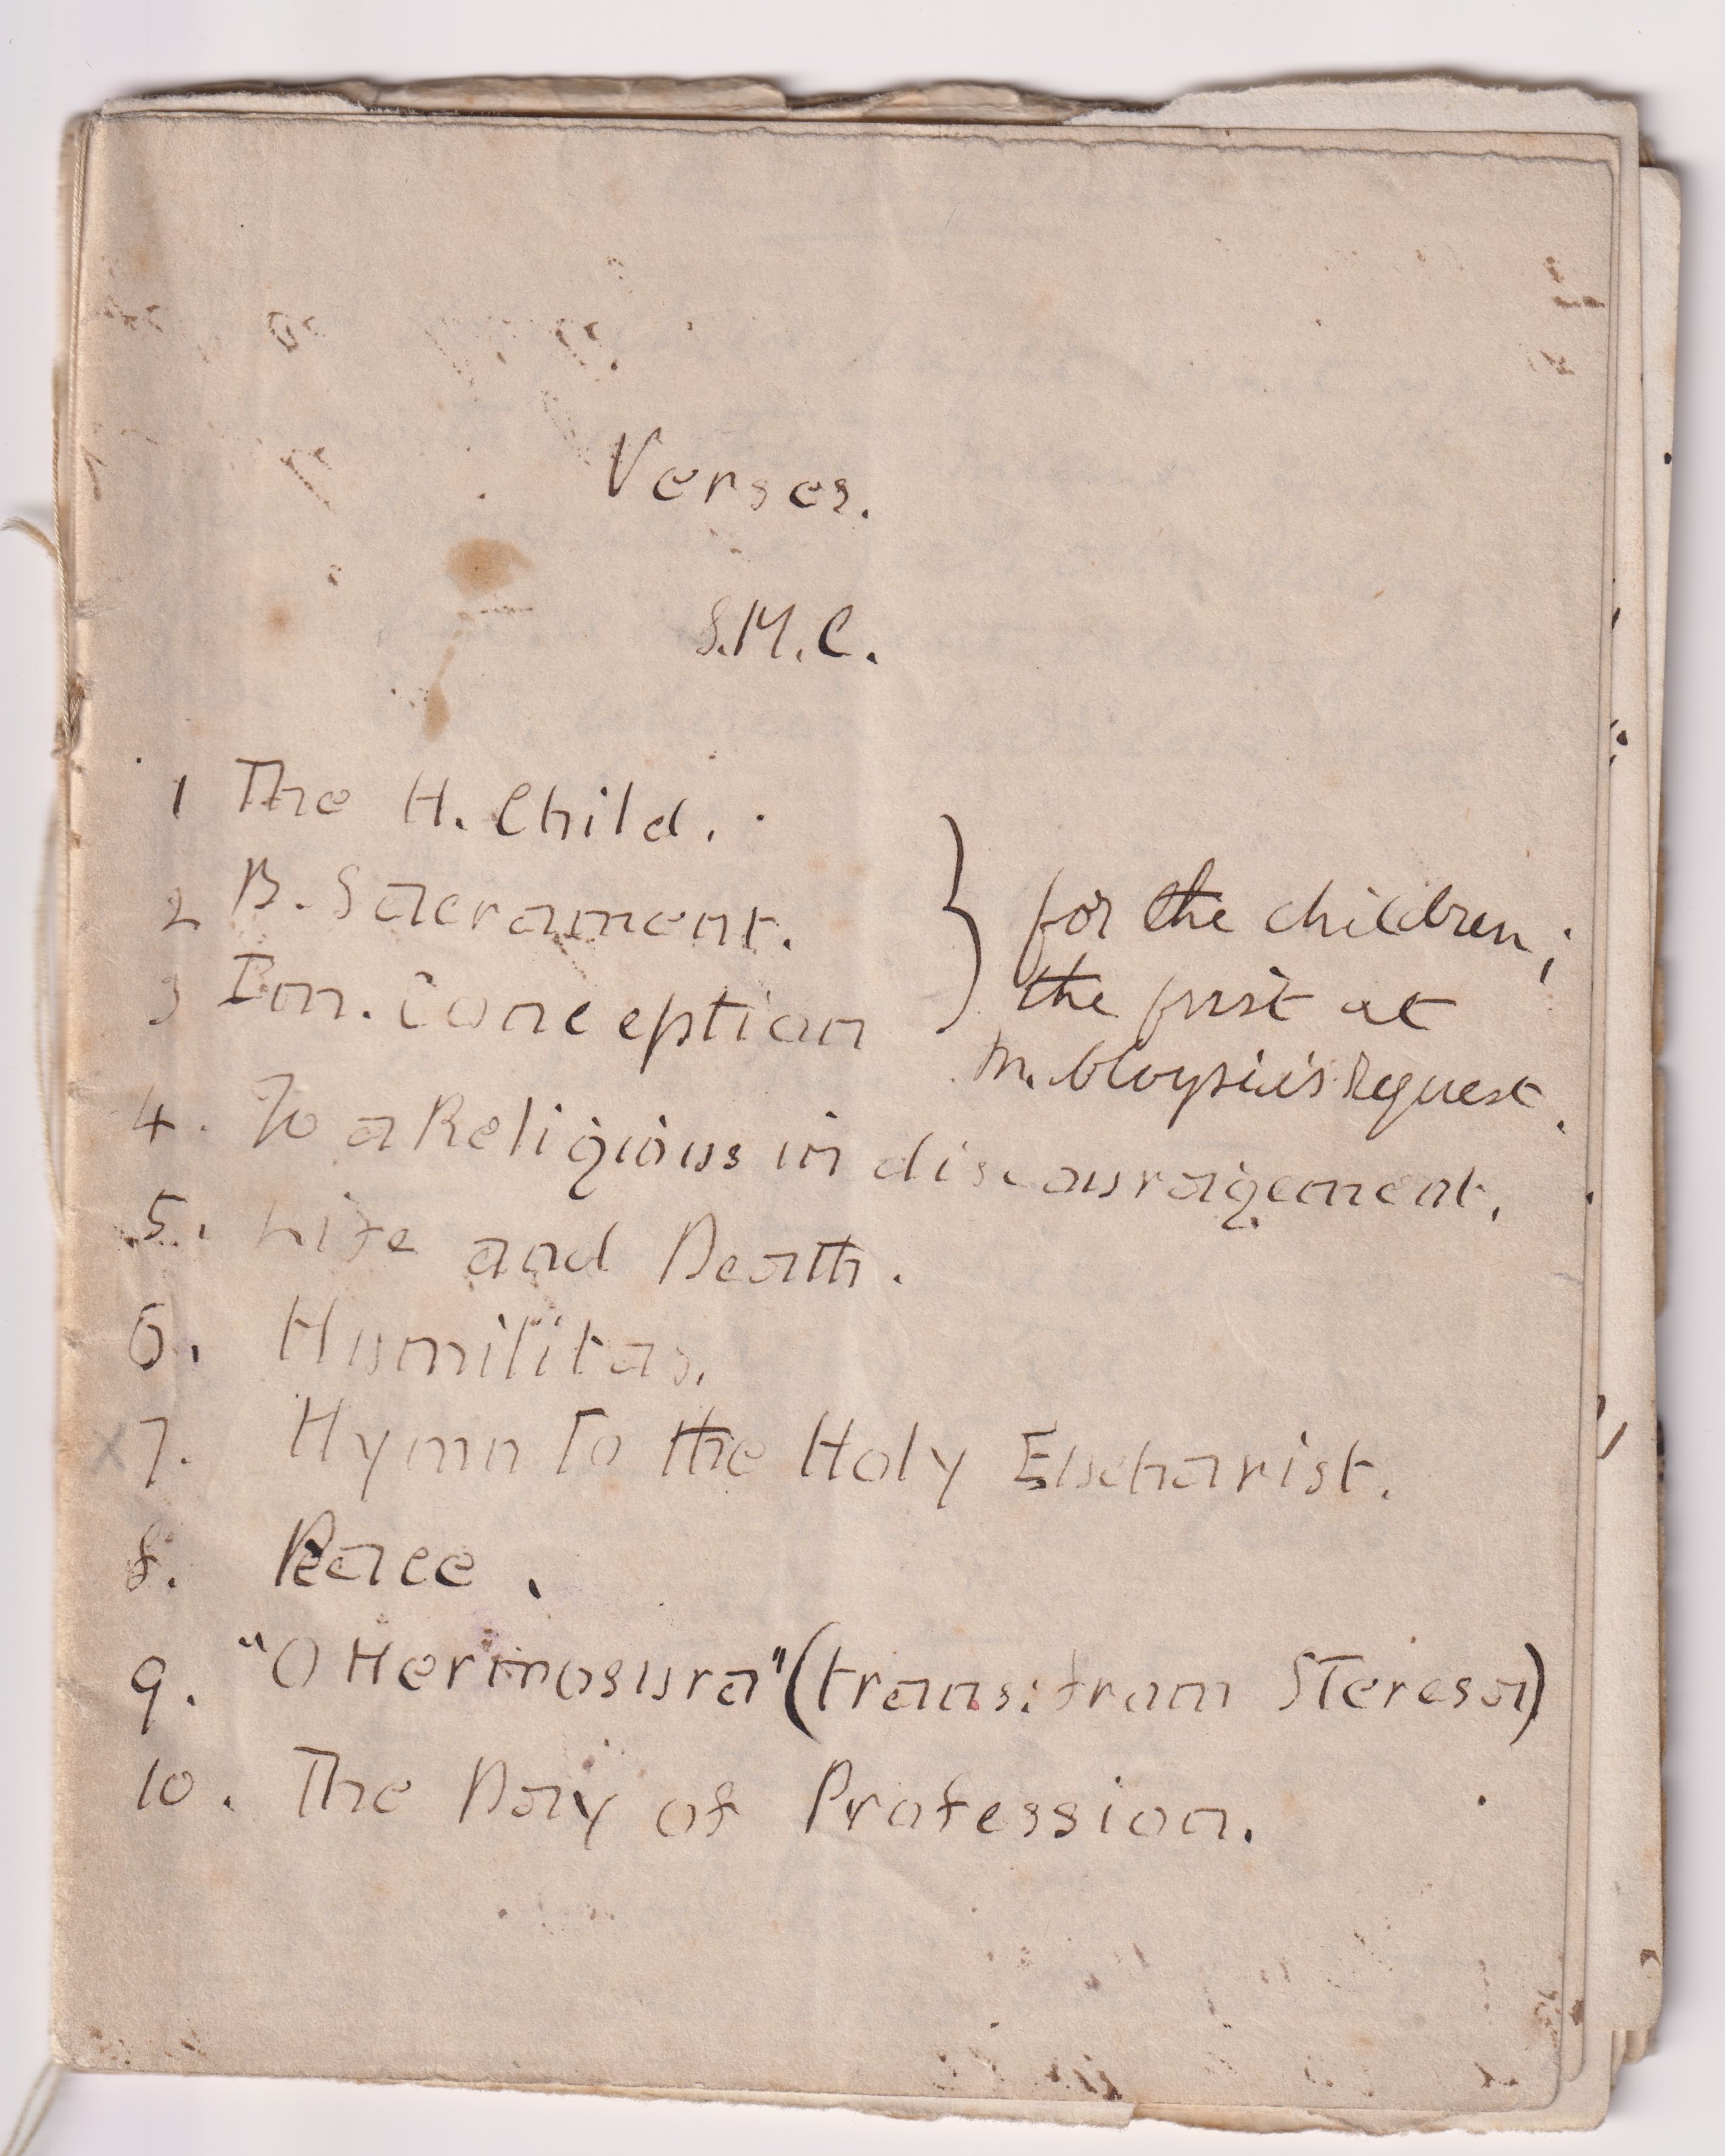 Verses.
S.M.C.
1 The H. Child.
2 B. Sacrament.
3 Im. Conception
} for the children;
the first at
M. Aloysius's Request.
4. To a Religious in discouragement.
5. Life and Death.
6. Humilitas.
7. Hymn to the Holy Eucharist.
8. Peace.
9. "O Hermosura" (trans: from S Teresa)
10. The Day of Profession.